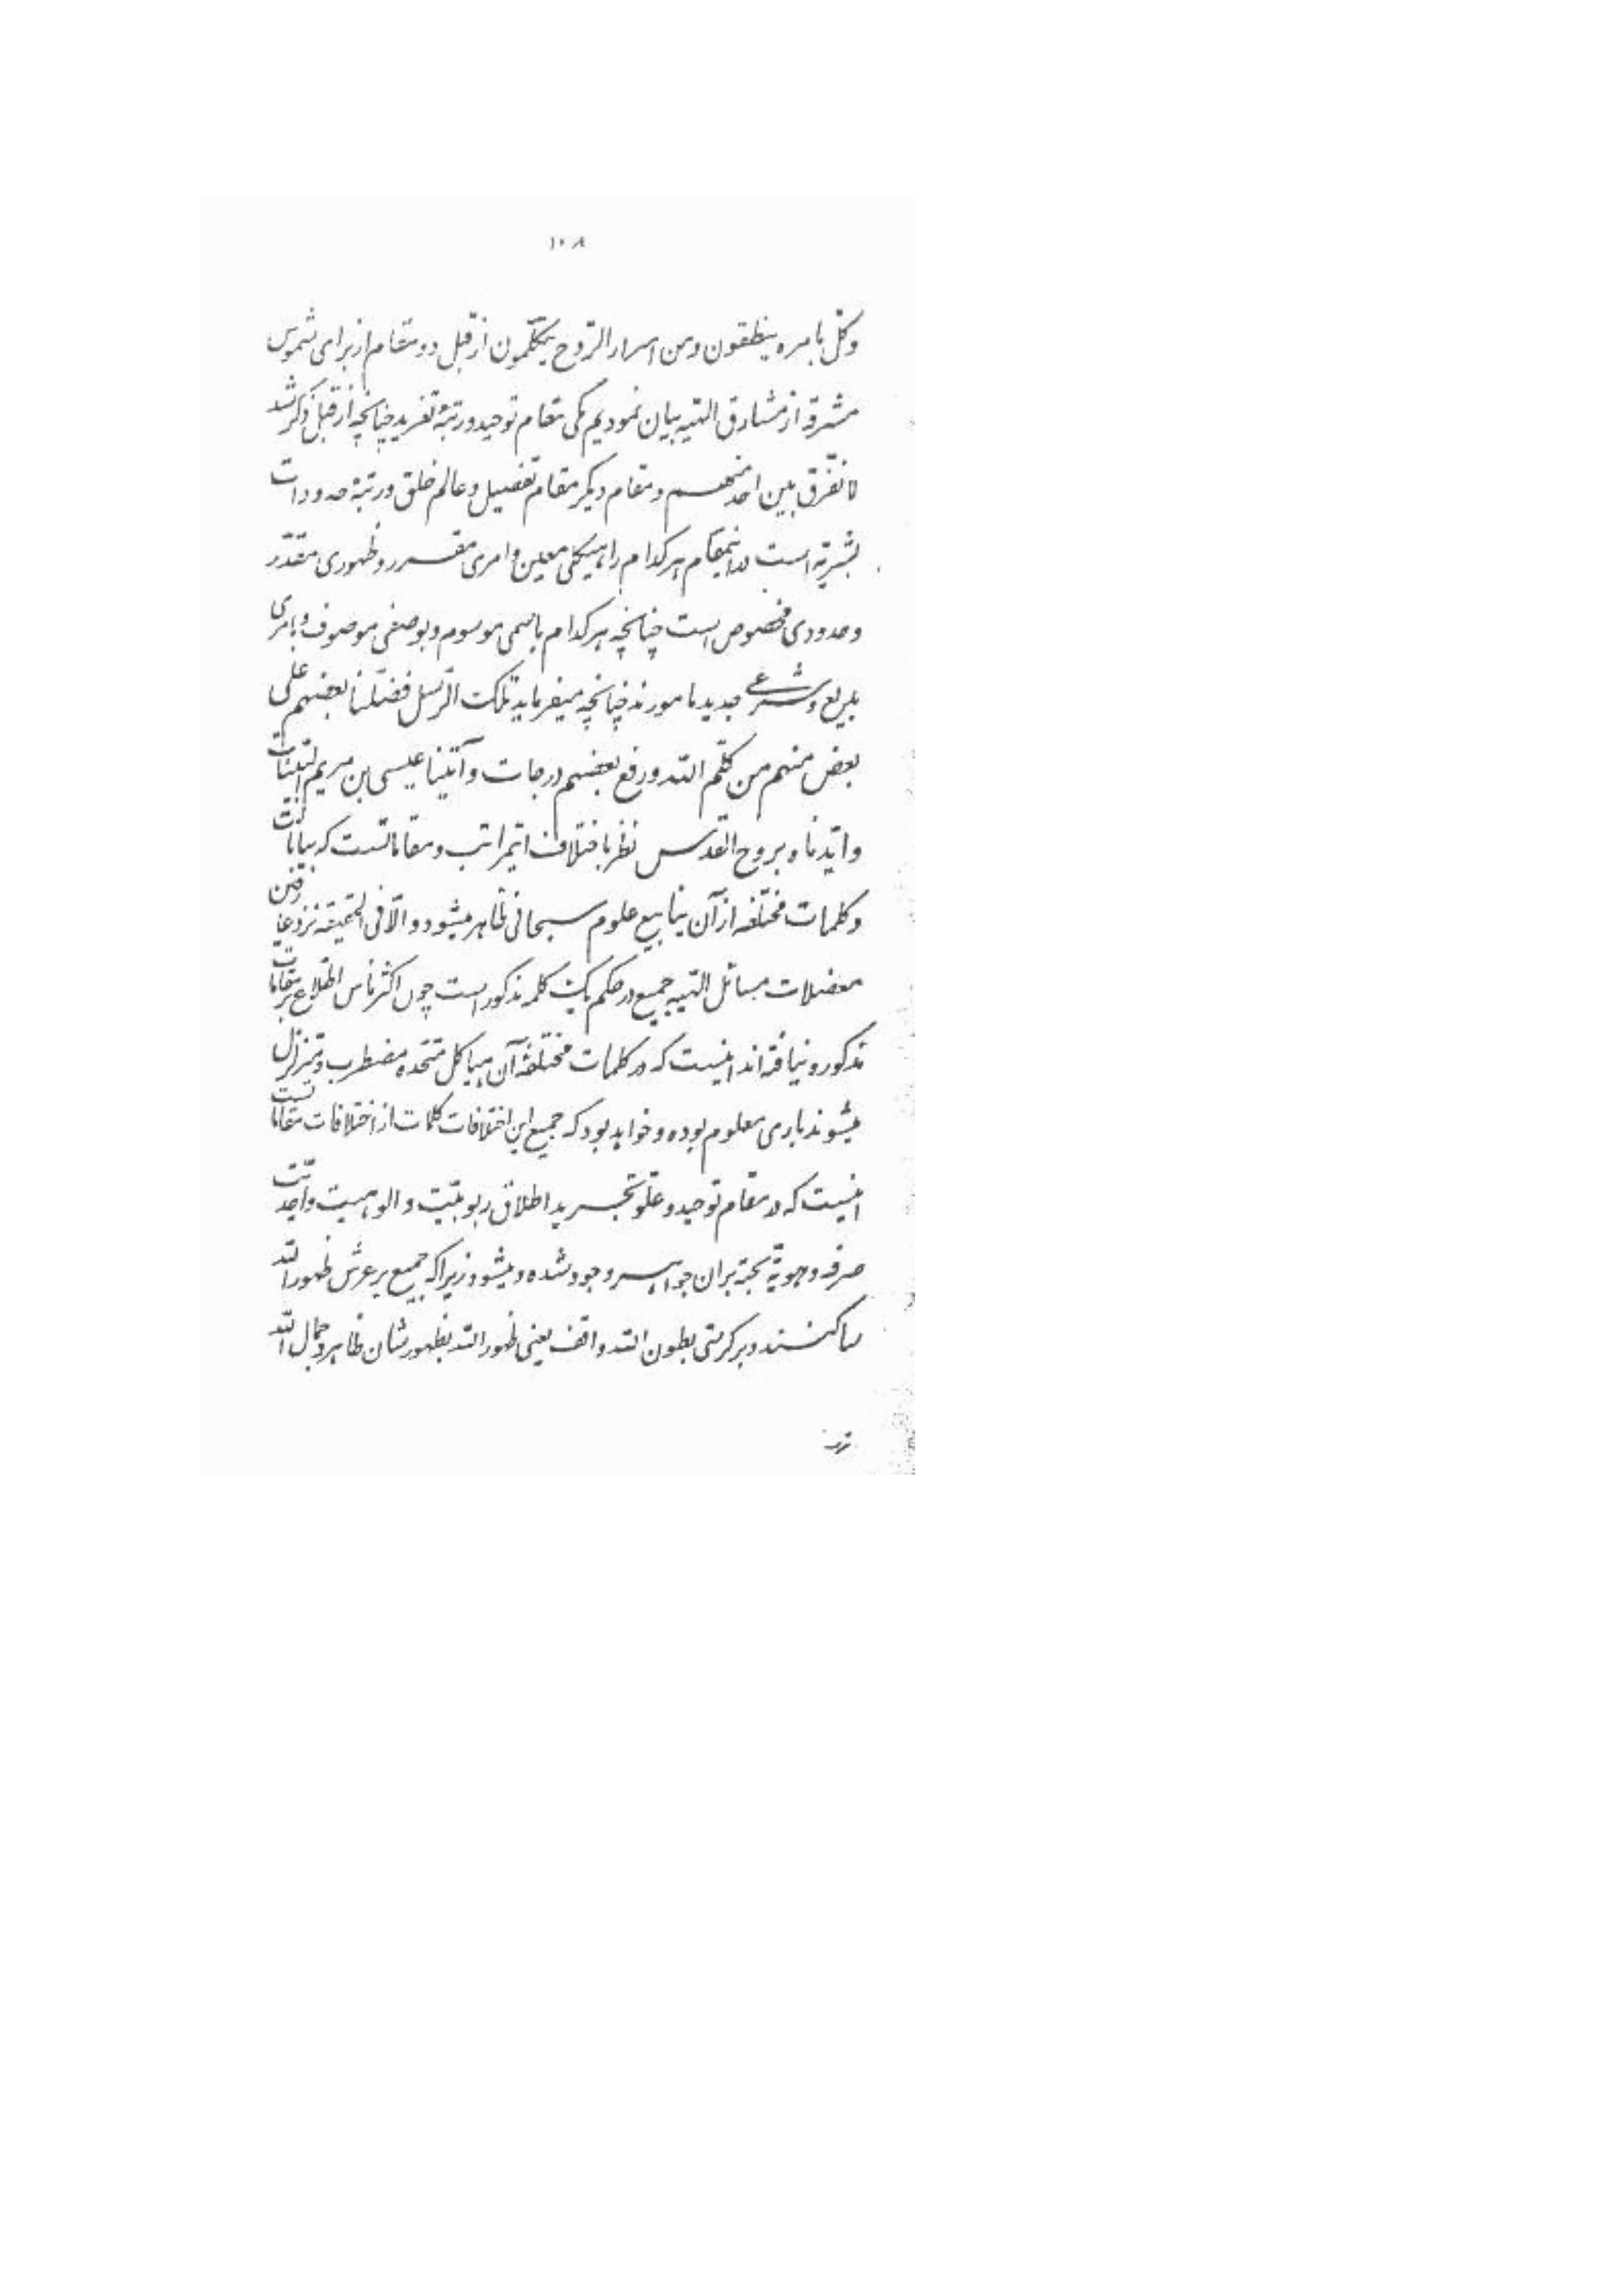 ۱۰۸
وکلّ بامره ینطقون و من اسرار الرّوح یتکلّمون از قبل دو مقام از برای شموس
مشرقه از مشارق الهیّه بیان نمودیم یکی مقام توحید و رتبهٔ تفرید چنانچه از قبل ذکر شد
لا نفرّق بین احد منهم و مقام دیگر مقام تفصیل و عالم خلق و رتبهٔ حدودات
بشریّه است در اینمقام هر کدام را هیکلی معیّن و امری مقرر و ظهوری مقدّر
و حدودی مخصوص است چنانچه هر کدام باسمی موسوم و بوصفی موصوف و بامری
بدیع و شرعی جدید مامورند چنانچه میفرماید تلک الرّسل فضّلنا بعضهم علی
بعض منهم من کلّم الله و رفع بعضهم درجات و آتینا عیسی بن مریم البیّنات
و ایّدناه بروح القدس نظر باختلاف اینمراتب و مقاماتست که بیانات
و کلمات مختلفه از آن ینابیع علوم سبحانی ظاهر میشود و الّا فی الحقیقه نزد عارفین
معضلات مسائل الهیّه جمیع در حکم یک کلمه مذکور است چون اکثر ناس اطّلاع بر مقامات
مذکوره نیافته‌اند اینست که در کلمات مختلفهٔ آن هیاکل متّحده مضطرب و متزلزل
میشوند باری معلوم بوده و خواهد بود که جمیع این اختلافات کلمات از اختلافات مقاماتست
اینست که در مقام توحید و علوّ تجرید اطلاق ربوبیّت و الوهیّت و احدیّت
صرفه و هویّهٔ بحته بر آن جواهر وجود شده و میشود زیرا که جمیع بر عرش ظهور الله
ساکنند و بر کرسیّ بطون الله واقف یعنی ظهور الله بظهورشان ظاهر و جمال الله